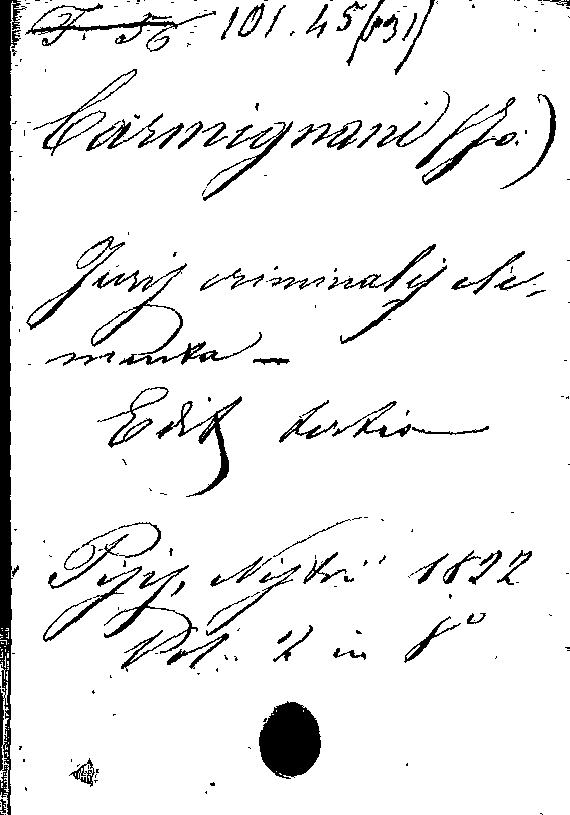 F. 56. 101.45(131)
Carmignani (Jo:)
Juris criminalis ele-
menta —
Edit tertia
Pisis, Nistri 1822
Vol. 2 in 8º